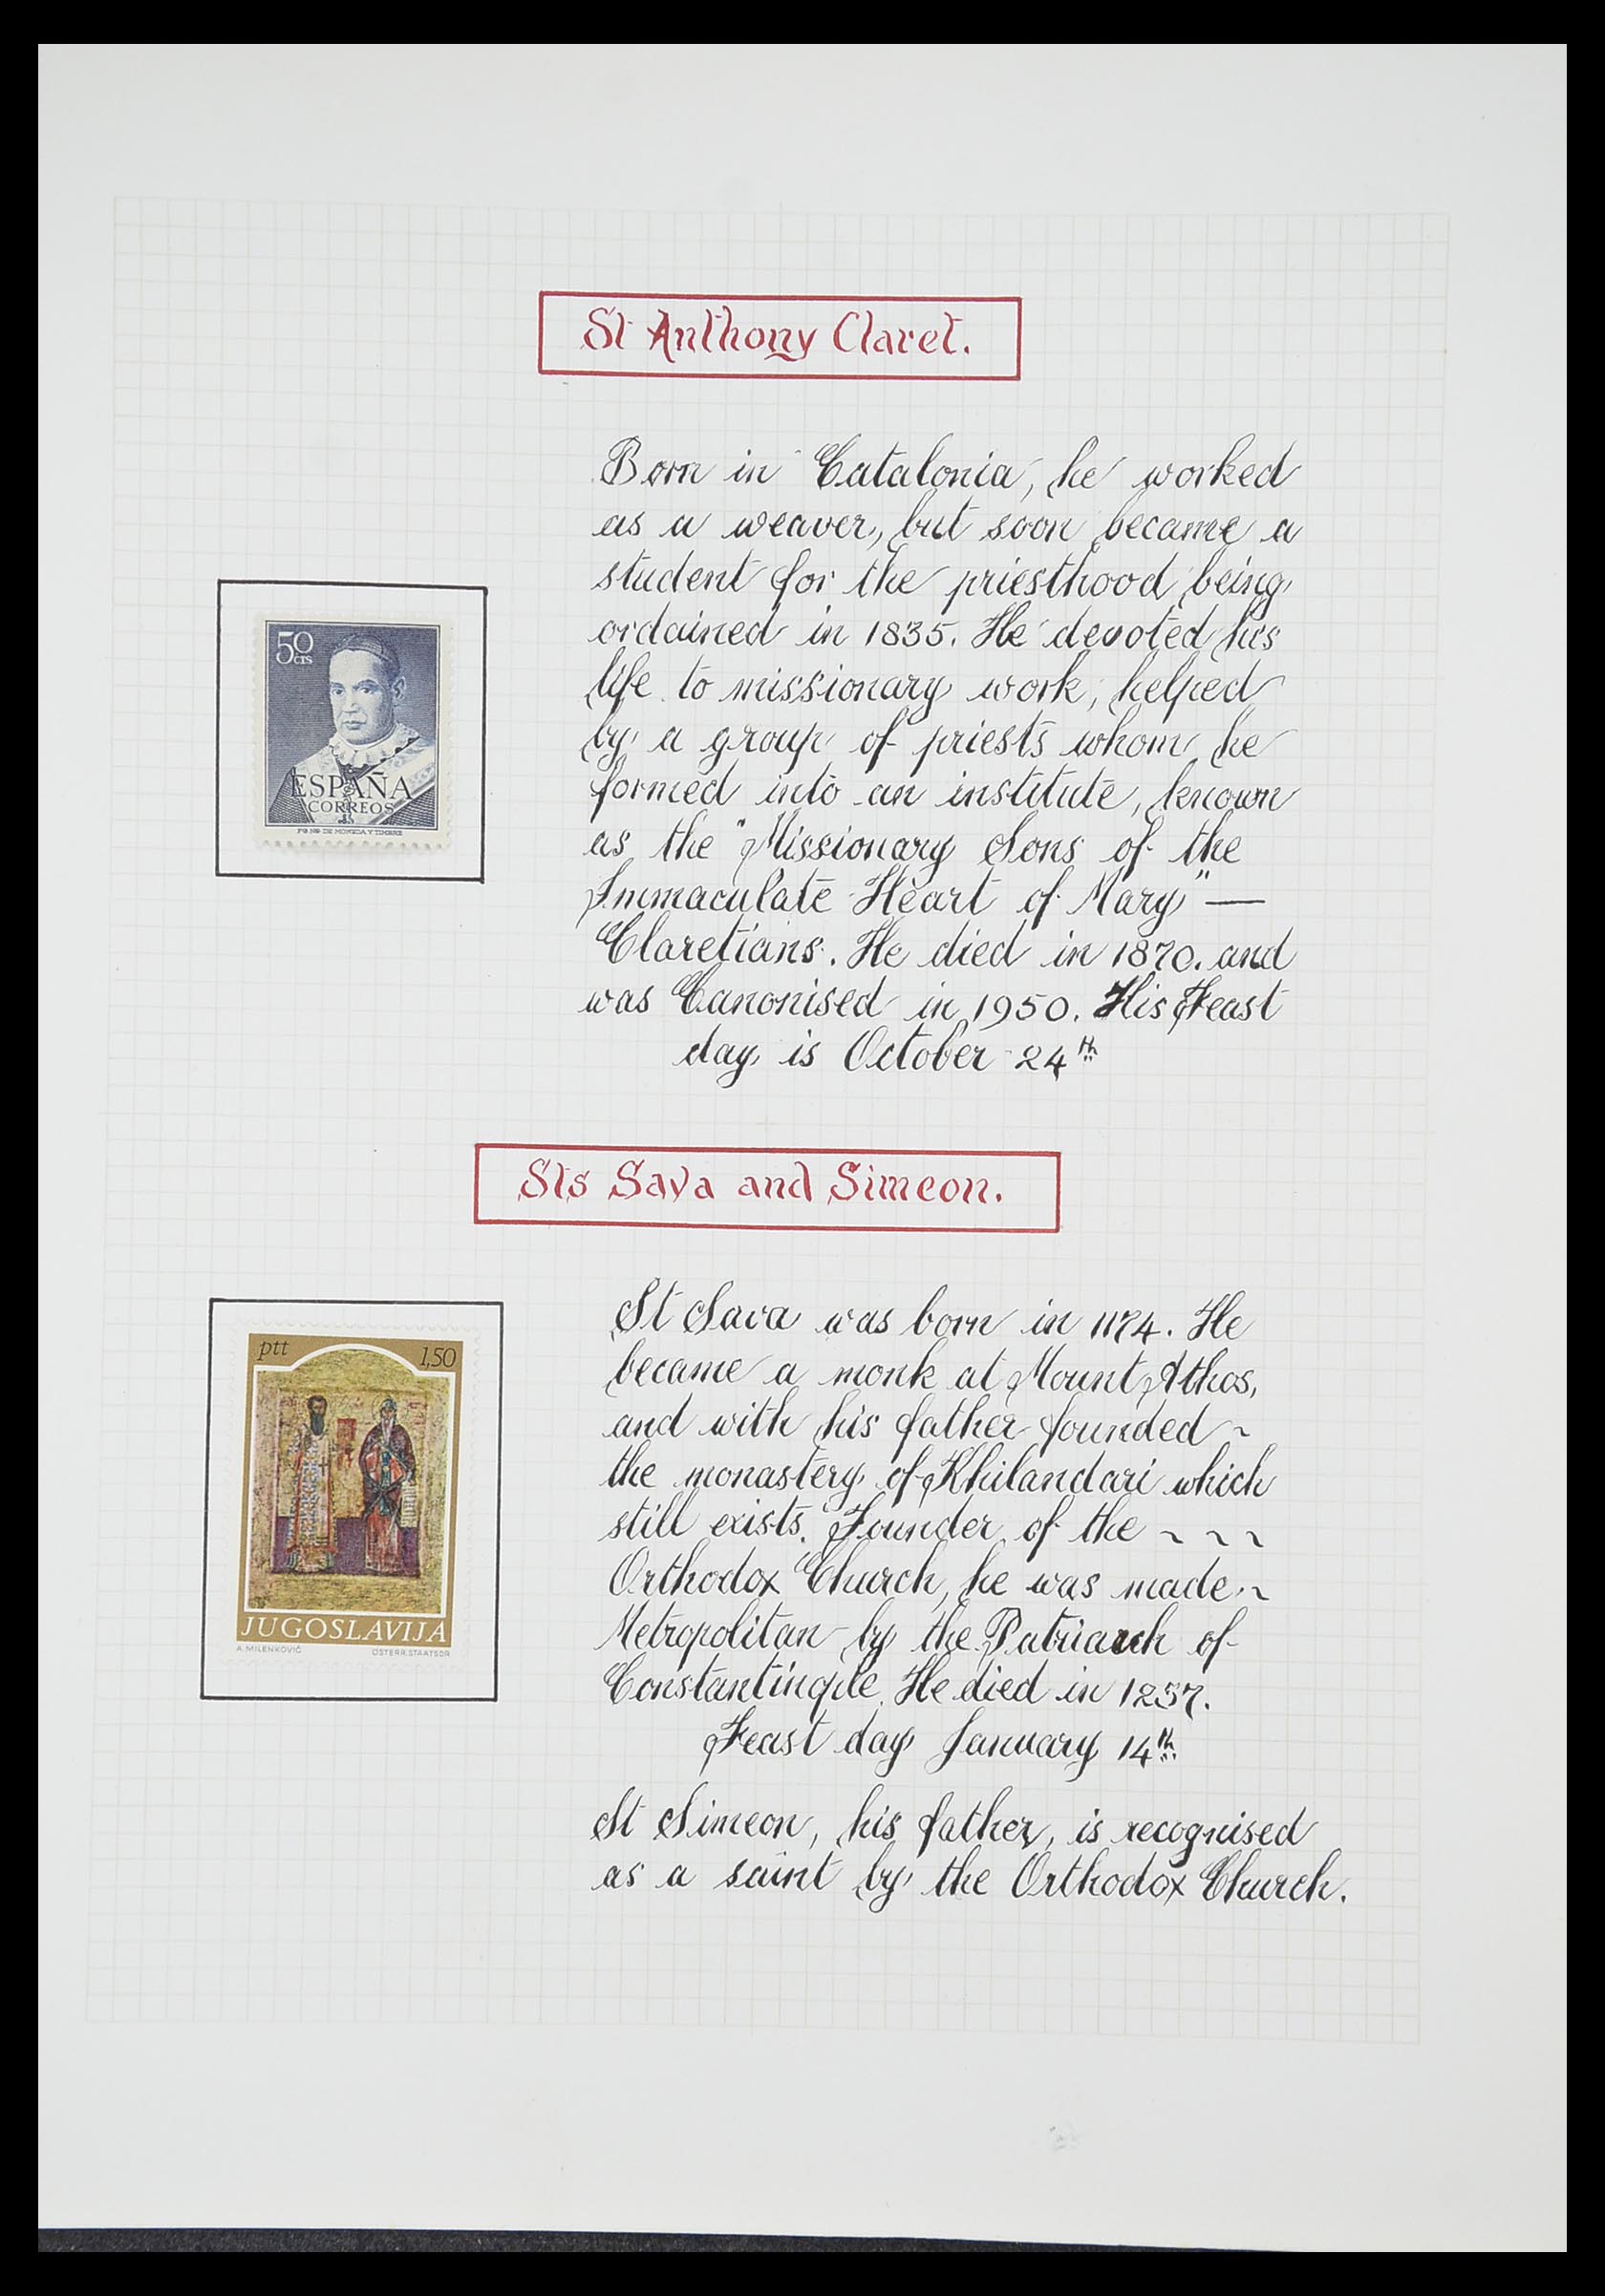 St Anthony Claret.
Born in Catalonia, he worked
as a weaver, but soon became a
student for the priesthood being
ordained in 1835. He devoted his
life to missionary work, helped
by a group of priests whom he
formed into an institute, known
as the "Missionary Sons of the
Immaculate Heart of Mary" —
Claretians. He died in 1870. and
was Canonised in 1950. His Feast
day is October 24th
50
CTS
ESPAÑA
CORREOS
Sts Sava and Simeon.
St Sava was born in 1174. He
became a monk at Mount Athos,
and with his father founded ~
the monastery of Khilandari which
still exists. Founder of the ~ ~ ~
Orthodox Church, he was made ~
Metropolitan by the Patriarch of
Constantinople. He died in 1237.
Feast day January 14th
St Simeon, his father, is recognised
as a saint by the Orthodox Church.
ptt 1,50
JUGOSLAVIJA
A. MILENKOVIĆ ÖSTERR. STAATSDR